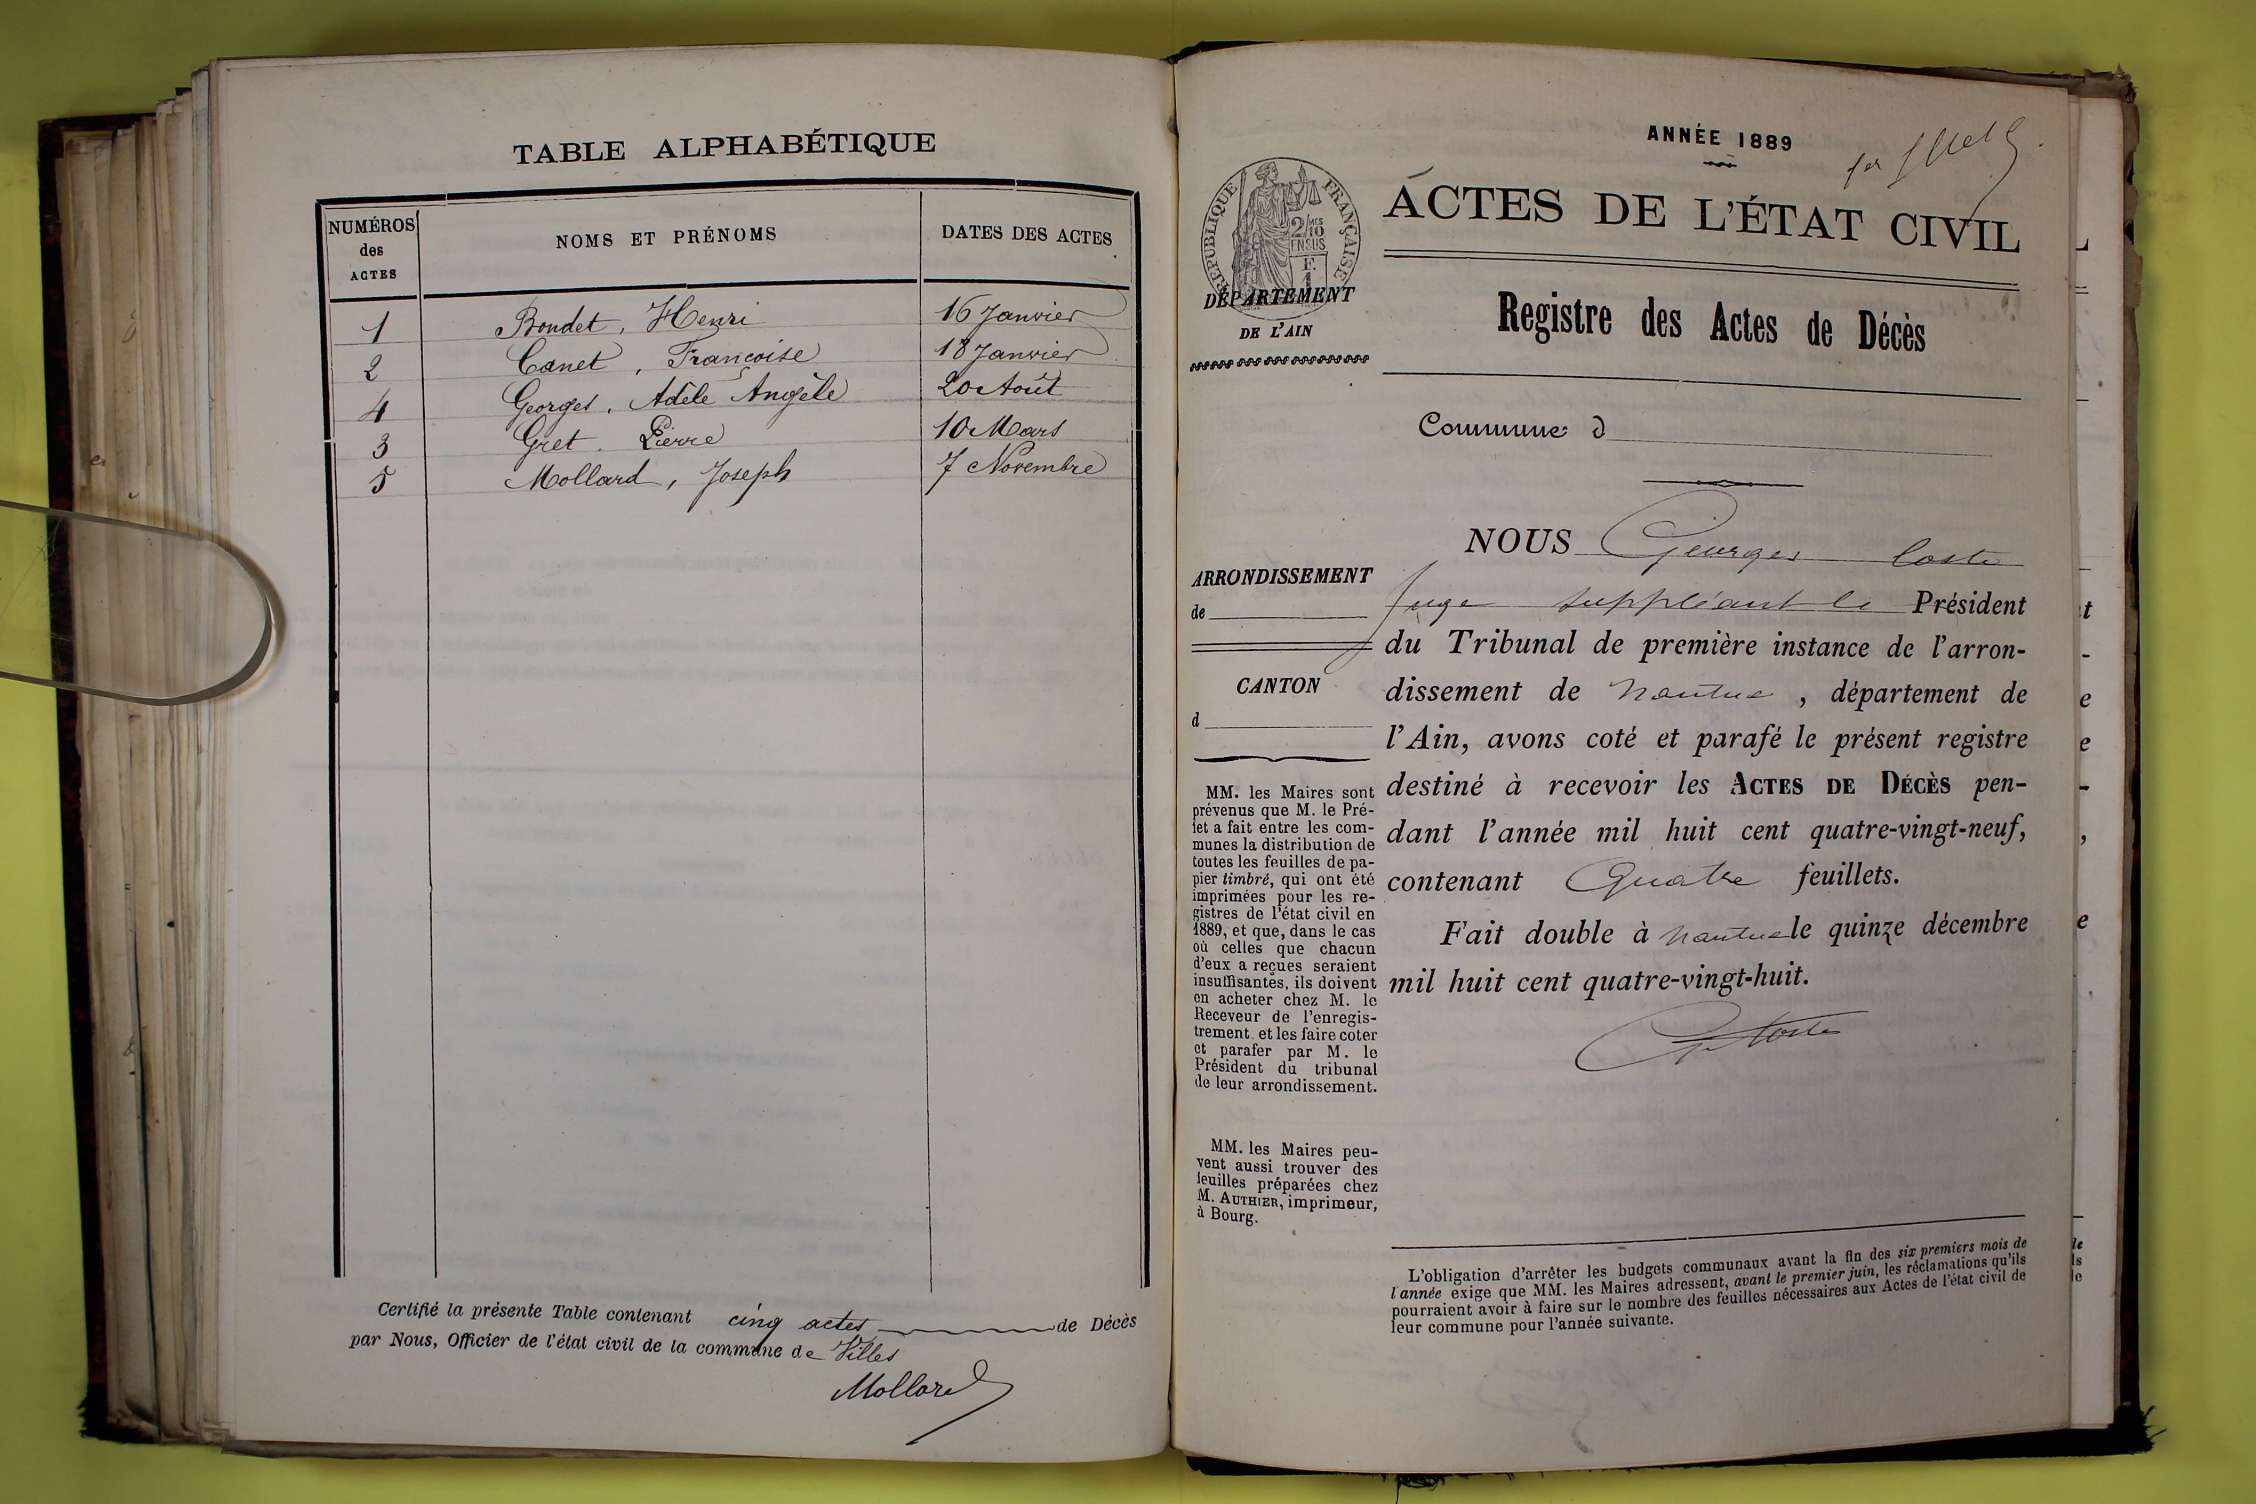 TABLE ALPHABÉTIQUE
NUMÉROS
des
ACTES
NOMS ET PRÉNOMS
DATES DES ACTES
1 Bondet, Henri 16 Janvier
2 Canet, Françoise 18 Janvier
4 Georges, Adèle Angèle 20 Août
3 Gret, Pierre 10 Mars
5 Mollard, Joseph 7 Novembre
Certifié la présente Table contenant cinq actes de Décès
par Nous, Officier de l'état civil de la commune de Villes
Mollard
ANNÉE 1889
ACTES DE L'ÉTAT CIVIL
RÉPUBLIQUE FRANÇAISE
2/10
EN SUS
F.
1
DÉPARTEMENT
DE L'AIN
Registre des Actes de Décès
Commune d
ARRONDISSEMENT
de
CANTON
d
MM. les Maires sont
prévenus que M. le Pré-
fet a fait entre les com-
munes la distribution de
toutes les feuilles de pa-
pier timbré, qui ont été
imprimées pour les re-
gistres de l'état civil en
1889, et que, dans le cas
où celles que chacun
d'eux a reçues seraient
insuffisantes, ils doivent
en acheter chez M. le
Receveur de l'enregis-
trement et les faire coter
et parafer par M. le
Président du tribunal
de leur arrondissement.
MM. les Maires peu-
vent aussi trouver des
feuilles préparées chez
M. AUTHIER, imprimeur,
à Bourg.
NOUS Georges Coste
Juge suppléant le Président
du Tribunal de première instance de l'arron-
dissement de Nantua, département de
l'Ain, avons coté et parafé le présent registre
destiné à recevoir les ACTES DE DÉCÈS pen-
dant l'année mil huit cent quatre-vingt-neuf,
contenant Quatre feuillets.
Fait double à Nantua le quinze décembre
mil huit cent quatre-vingt-huit.
G. Coste
L'obligation d'arrêter les budgets communaux avant la fin des six premiers mois de
l'année exige que MM. les Maires adressent, avant le premier juin, les réclamations qu'ils
pourraient avoir à faire sur le nombre des feuilles nécessaires aux Actes de l'état civil de
leur commune pour l'année suivante.